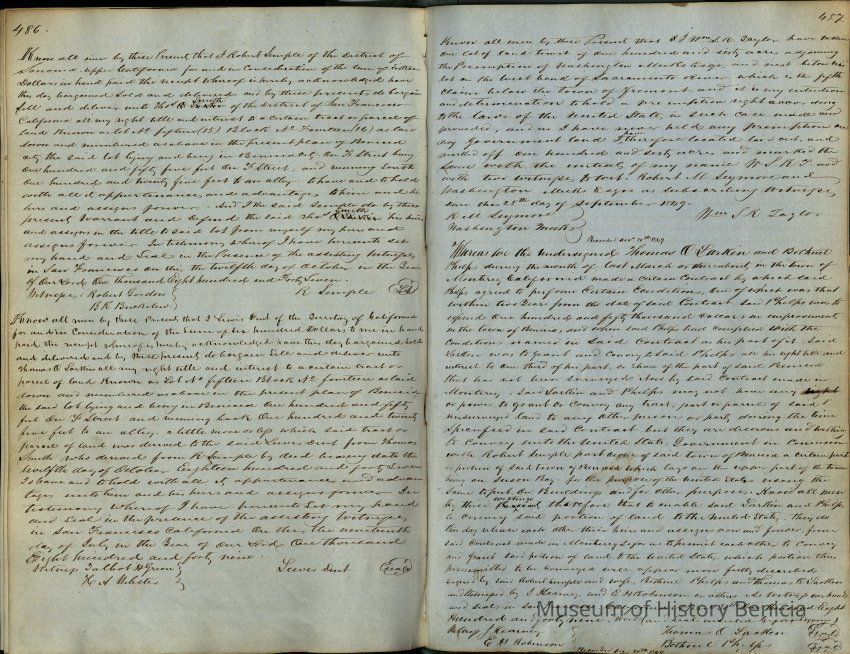 486.
Know all men by these Presents, that I Robert Semple of the District of
Sonoma Upper California for and in Consideration of the Sum of
Dollars in hand paid the receipt whereof is hereby acknowledged have
this day bargained Sold and delivered and by these presents do bargain
Sell and deliver unto Thos Smith of the District of San Francisco
California all my right title and interest to a certain tract or parcel of
land Known as lot No fifteen (15) Block No Fourteen (14) as laid
down and numbered as above in the present plan of Benicia
city the said lot lying and being in Benicia City on F. Street being
One hundred and fifty five feet on F. Street, and running back
One hundred and twenty five feet to an alley to have and to hold
with all it appurtenances and advantages to him and his
heirs and assigns forever. And I the said Semple do by these
present Warrant and Defend the said Thos Smith his heirs
and assigns in the title to said lot from myself my heirs and
assigns forever. In testimony whereof I have hereunto set
my hand and Seal in the Presence of the attesting Witnesses
in San Francisco on the the twelfth day of October in the Year
of Our Lord One thousand Eight hundred and Forty Seven.
Witness: Robert Gordon R. Semple
B R Buckelew
Know all men by these Presents that I Lewis Dent of the Territory of California
for and in Consideration of the Sum of Six hundred Dollars to me in hand
paid the receipt whereof is hereby acknowledged have this day bargained Sold
and delivered and by these presents do bargain Sell and deliver unto
Thomas O. Larkin all my right title and interest to a certain tract or
parcel of land Known as Lot No fifteen Block No fourteen as laid
down and numbered as above in the present plan of Benicia
the said lot lying and being in Benicia One hundred and fifty
feet On F Street and running back One hundred and twenty
five feet to an alley, a little more or less which said tract or
parcel of land was deeded to the said Lewis Dent from Thomas
Smith who derived from R Semple by deed bearing date the
twelfth day of October Eighteen hundred and forty Seven
To have and to hold with all it appurtenances and advan
tages unto him and his heirs and assigns forever In
testimony whereof I have hereunto set my hand
and Seal in the presence of the attesting Witnesses
in San Francisco California On the the nineteenth
day of July in the Year of Our Lord One thousand
Eight hundred and forty nine.
Witness Talbot H Green Lewis Dent Seal
H A Webster
487.
Know all men by these Present that I Wm S. R. Taylor have taken
a lot of land to wit of One hundred and sixty acres adjoining
the Preemption of Washington Meeks Esqr. and next below his
lot on the west bank of Sacramento River which is the fifth
claim below the town of Fremont and it is my intention
and determination to hold a preemption right according
to the laws of the United State, in such case made and
provided, and as I have never held any preemption on
any Government land I therefore located laid out, and
marked off One hundred and sixty acres, and marked the
Same with the initials of my name W S R T and
with two witnesses to wit: Robert M. Seymore and
Washington Meeks Esqrs as subscribing Witnesses
done this 25th day of September 1849.
R M Seymore Wm S R Taylor
Washington Meeks
Recorded
Whereas for the undersigned Thomas O Larkin and Bethuel
Phelps during the month of last March or thereabout, in the town of
Monterey California made a certain Contract by which said
Phelps agreed to perform Certain Conditions, One of which was that
within two Years from the date of said Contract Said Phelps was to
expend One hundred and fifty thousand Dollars in improvements
in the town of Benicia, and when said Phelps had complied With the
Conditions named in said Contract as his part of it said
Larkin was to grant and Convey to said Phelps all his right title and
interest to One third of his part, or share of the part of said Benicia
that has not been surveyed. Now by said Contract made in
Monterey, said Larkin and Phelps may not sell
or promise to grant or Convey any lot, part or parcel of said
unsurveyed land to any other person or party during the time
Specified in said Contract but they are desirous and willing
to Convey unto the United State, Government in Connexion
with Robert Semple part of said town of Benicia a certain part
or portion of said town of Benicia which lays on the upper part of the town
laying on Suison Bay, for the purpose of the United States using the
Same to put on Buildings and for other purposes, Know all men
by these writings therefore that to enable said Larkin and Phelps
to Convey said portion of land to the United State, they do
hereby release each other their heirs and assigns and forever from
said Contract made in Monterey so far as to permit each other to Convey
or grant said portion of land to the United State, which portion thus
permitted to be conveyed will appear more fully described
signed by said Robert Semple and wife, Bethuel Phelps and Thomas O. Larkin
and witnessed by J. Kearney and E H Robinson or others. As Witness our hands
and seals in San Eight
Hundred and forty nine
Witness J Kearney Thomas O Larkin Seal
E H Robinson Bethuel Phelps Seal
Museum of History Benicia